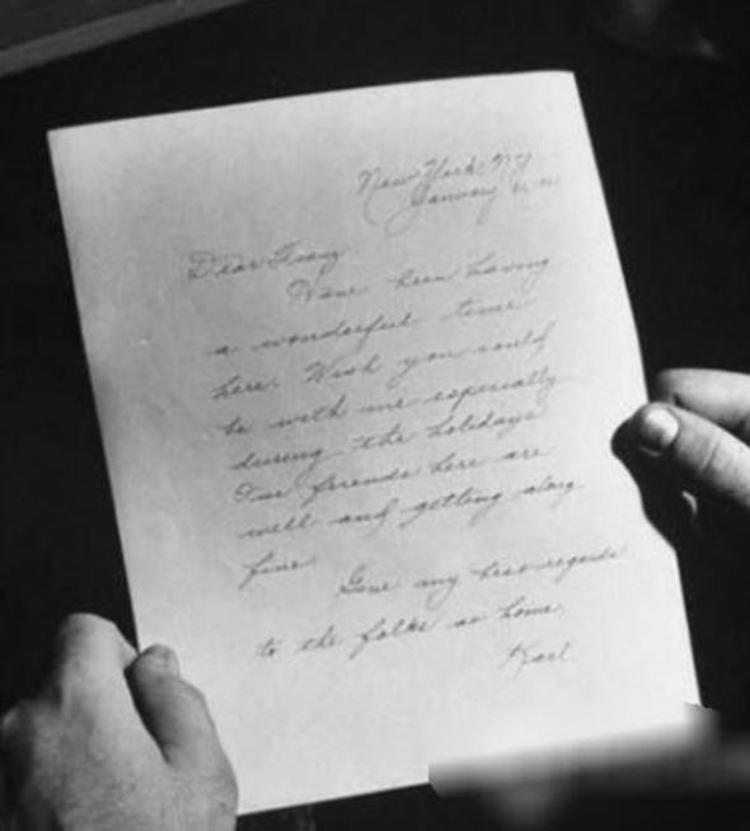 New York, NY
January
Dear Franz
Have been having
a wonderful time
here. Wish you could
be with me especially
during the holidays
Our friends here are
well and getting along
fine
Give my best regards
to the folks at home.
Karl